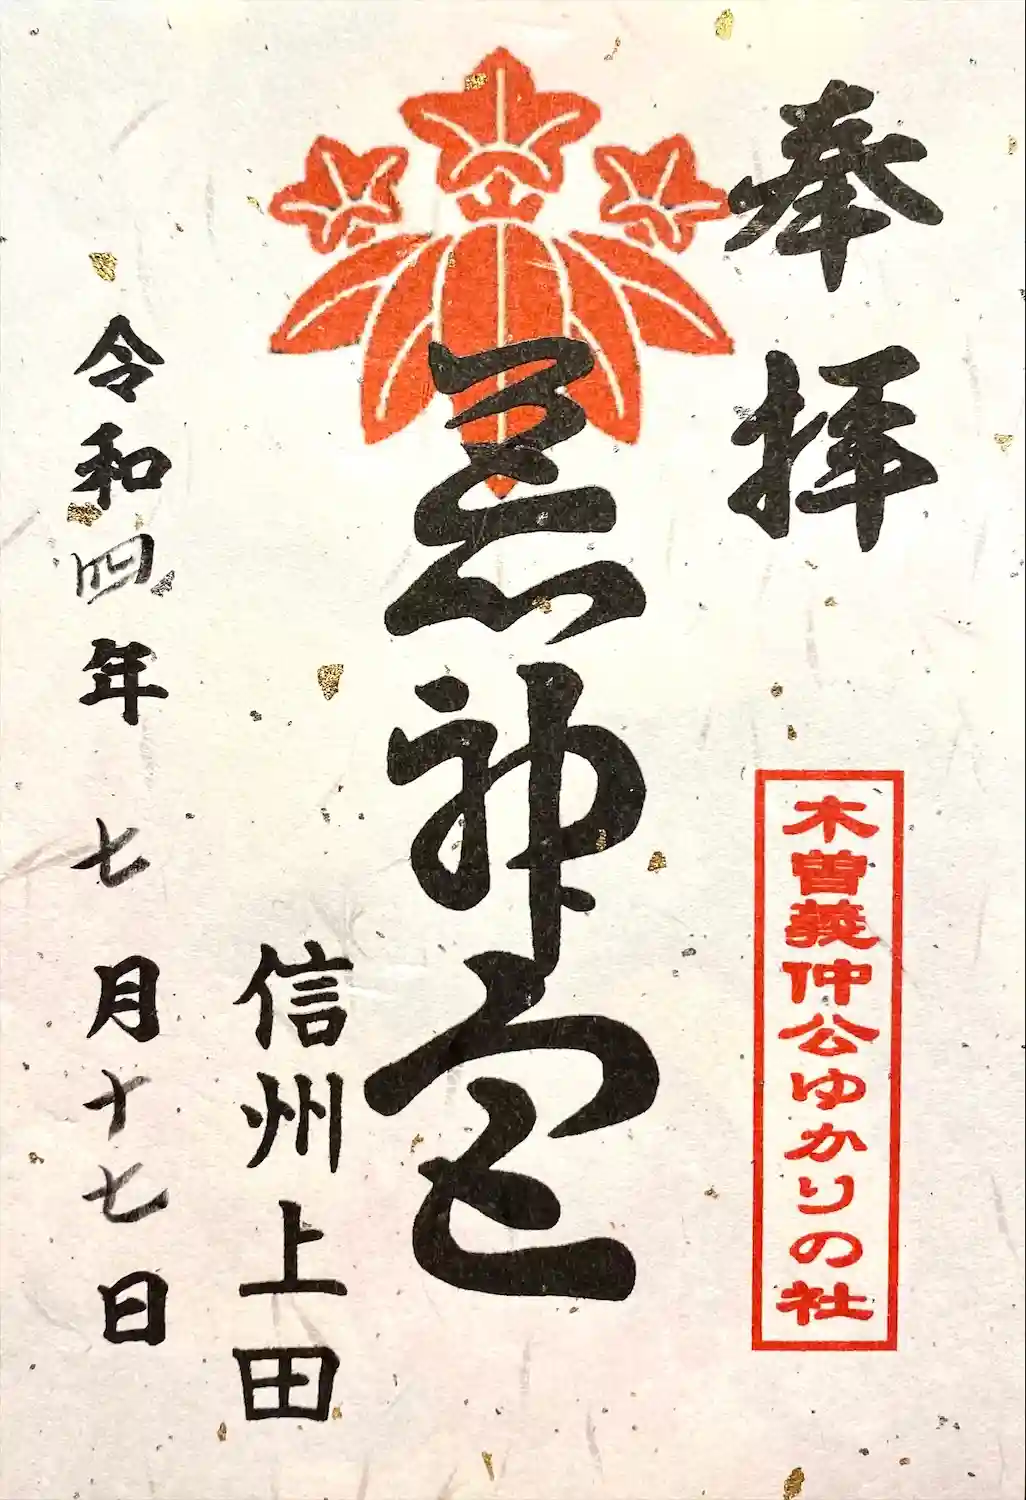 奉拝
木曽義仲公ゆかりの社
荒神宮
信州上田
令和四年七月十七日